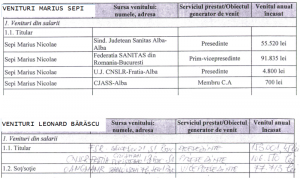 VENITURI MARIUS SEPI
Sursa venitului: numele, adresa
Serviciul prestat/Obiectul generator de venit
Venitul anual încasat
1. Venituri din salarii
1.1. Titular
Sepi Marius Nicolae
Sind. Judetean Sanitas Alba-Alba
Presedinte
55.520 lei
Sepi Marius Nicolae
Federatia SANITAS din Romania-Bucuresti
Prim-vicepresedinte
91.835 lei
Sepi Marius Nicolae
U.J. CNSLR-Fratia-Alba
Presedinte
4.800 lei
Sepi Marius Nicolae
CJASS-Alba
Membru C.A
700 lei
VENITURI LEONARD BĂRĂSCU
Sursa venitului: numele, adresa
Serviciul prestat/Obiectul generator de venit
Venitul anual încasat
1. Venituri din salarii
1.1. Titular
1.2. Soț/soție